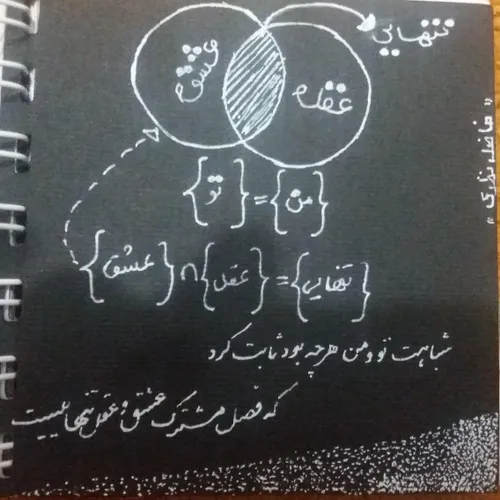 تنهایی
عشق
عقل
{من} = {تو}
{تنهایی} = {عقل} ∩ {عشق}
شباهت تو و من هر چه بود ثابت کرد
که فصل مشترک عشق و عقل تنهاییست
«فاضل نظری»